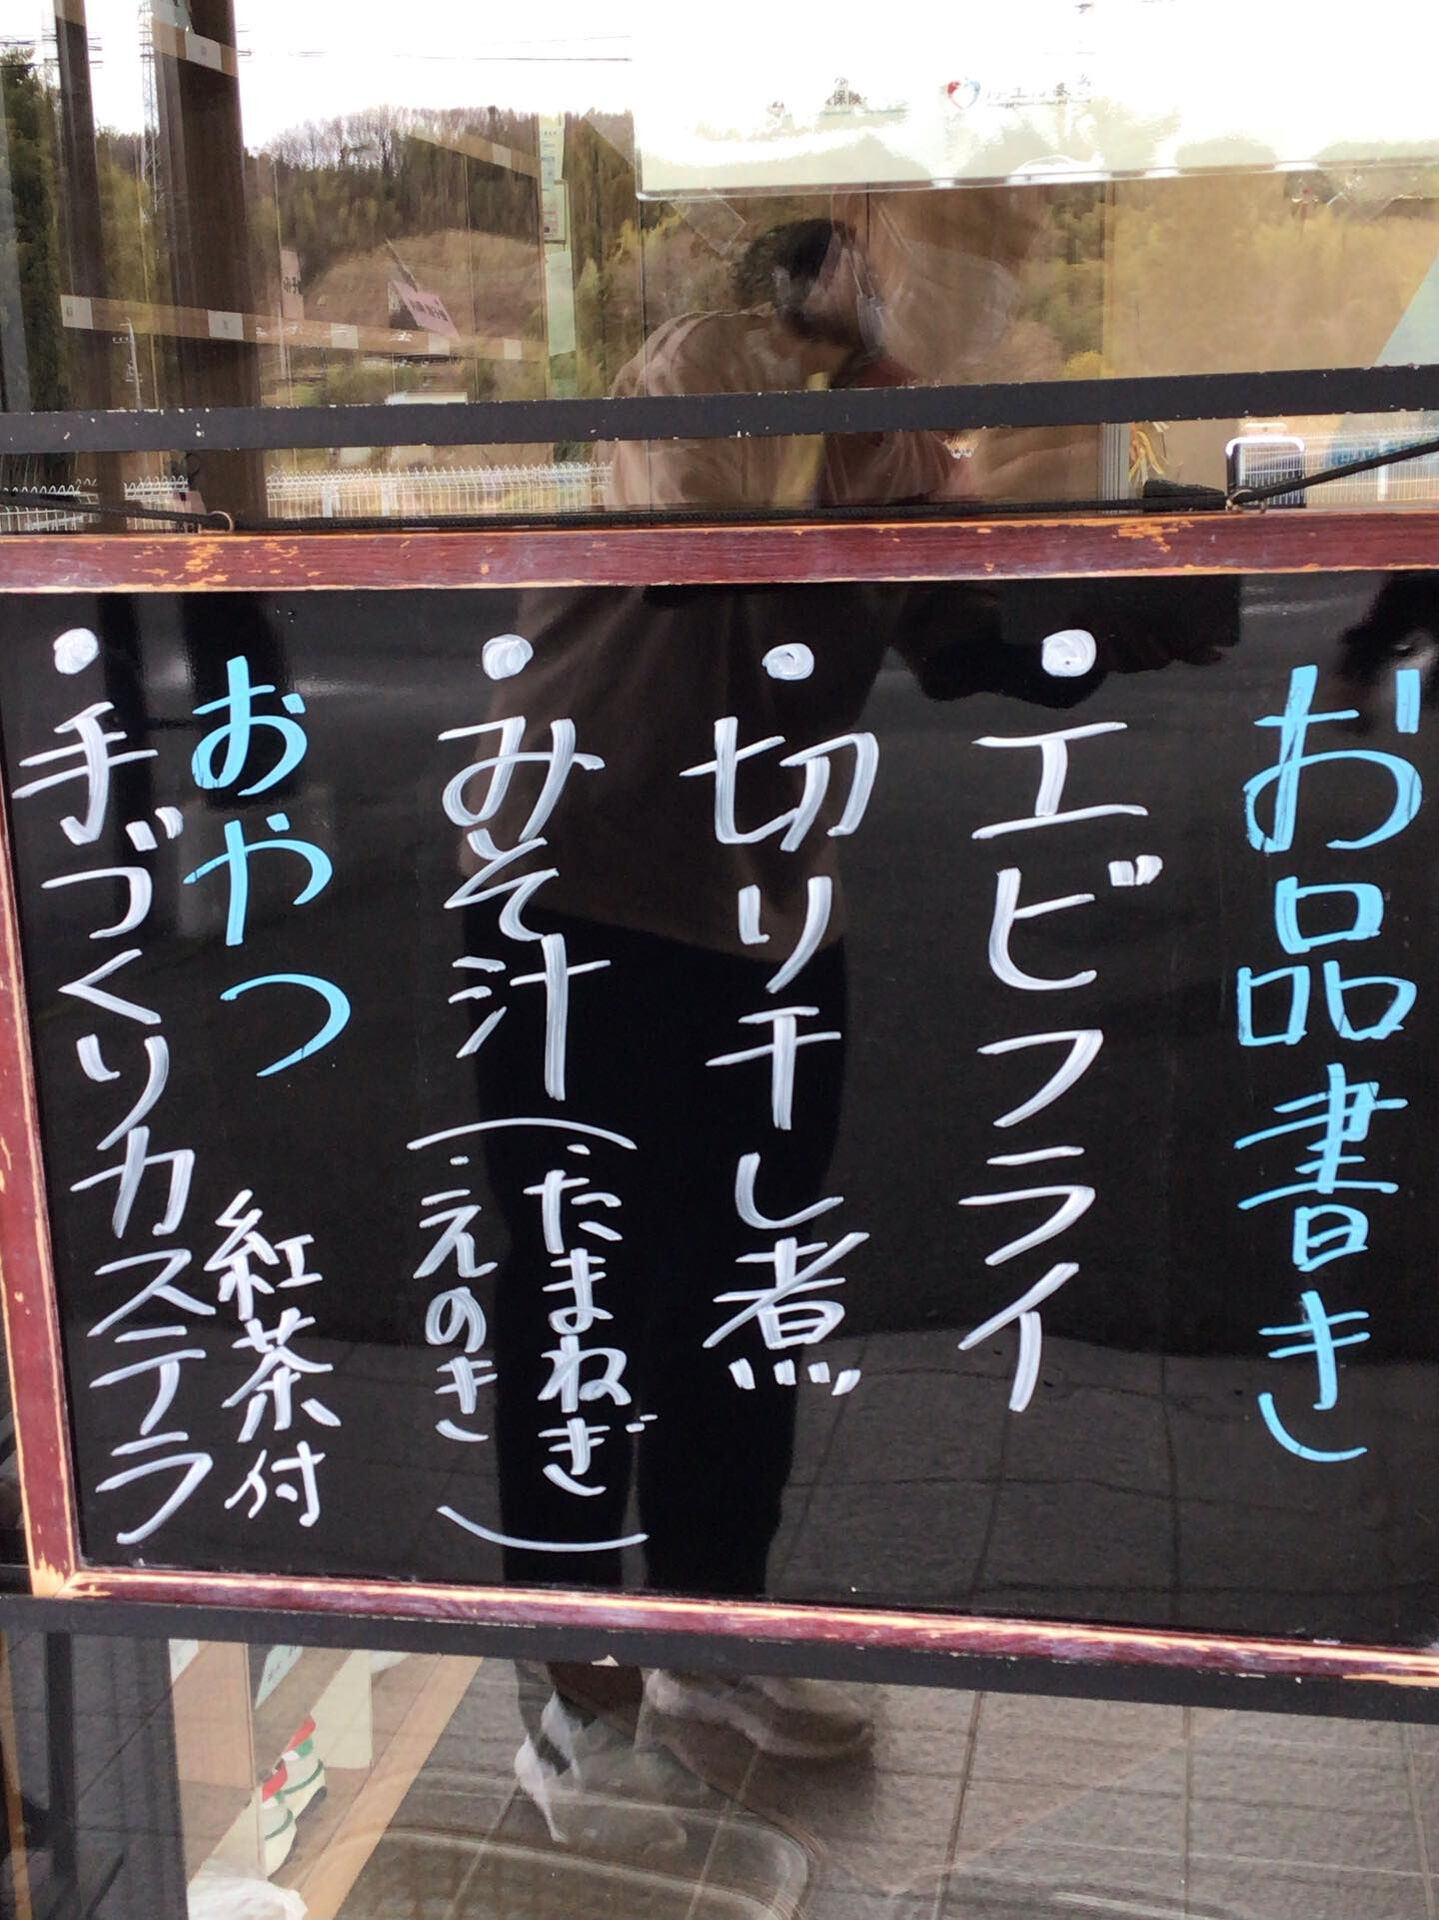 お品書き
・エビフライ
・切り干し煮
・みそ汁(・たまねぎ
・えのき)
おやつ 紅茶付
・手づくりカステラ
保険